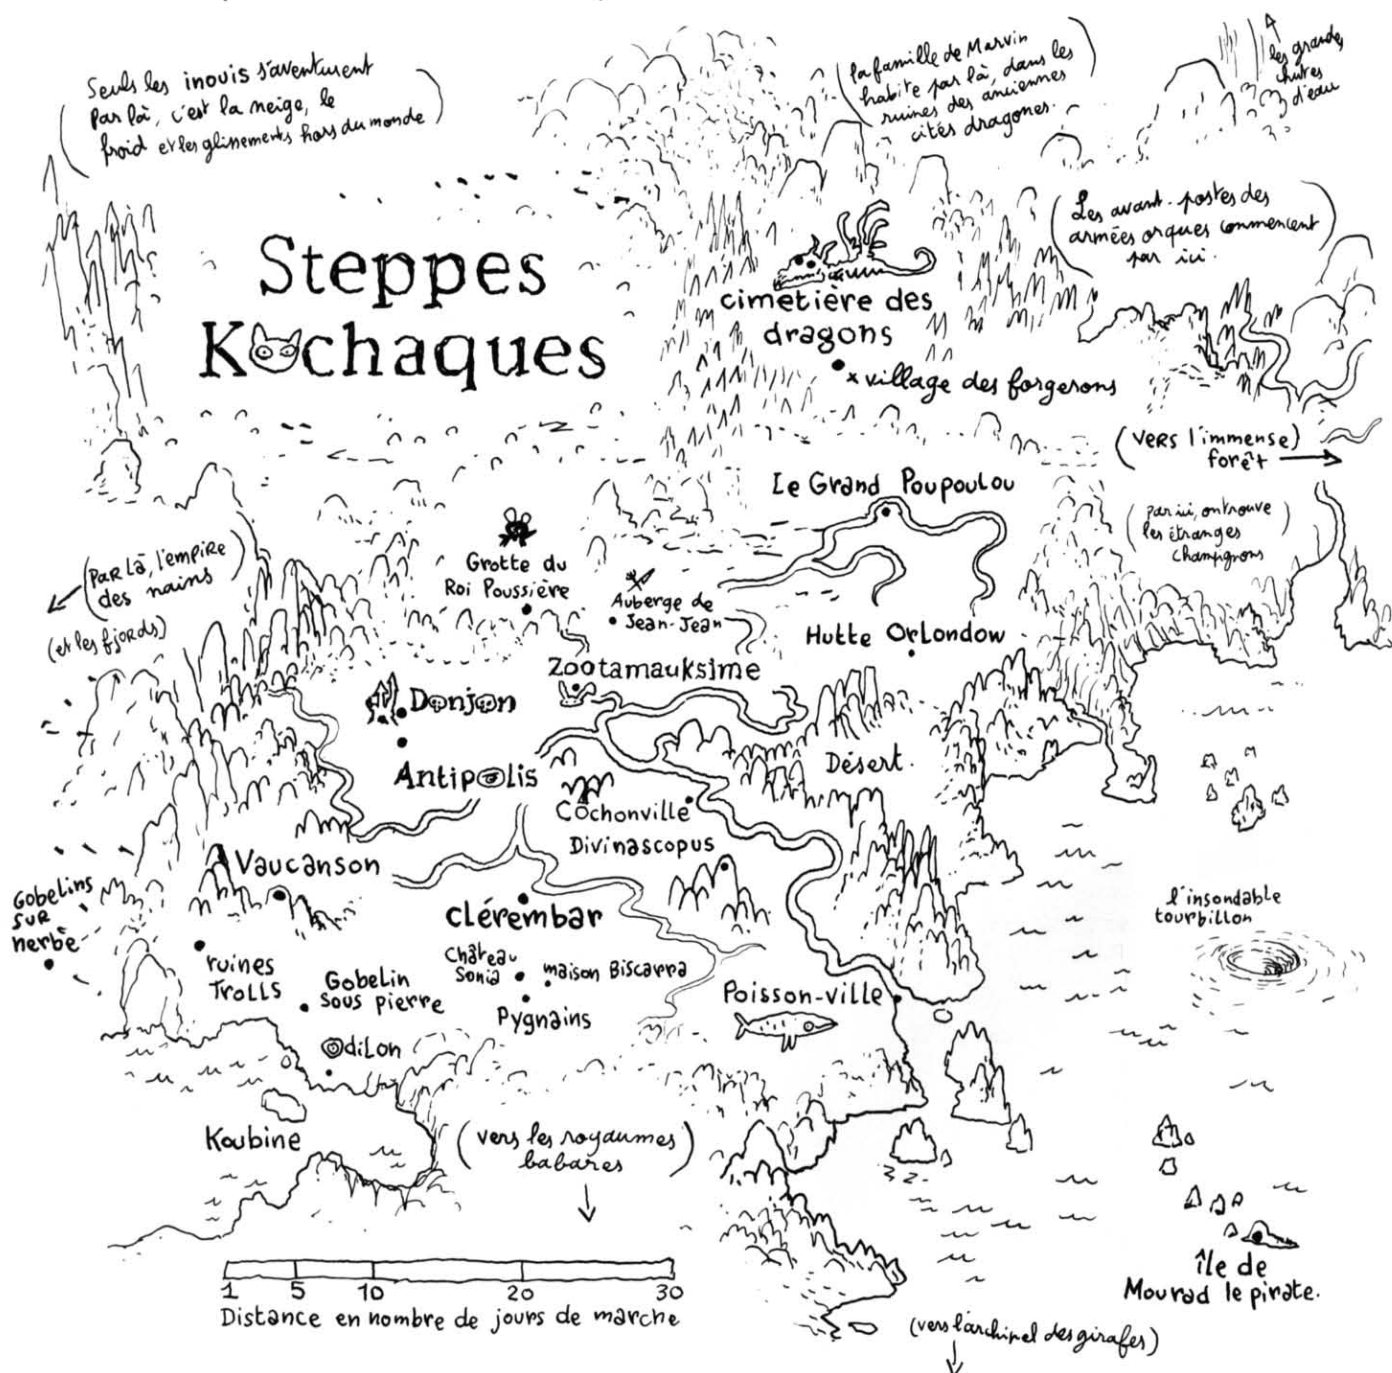 Seuls les inouis s'aventurent
par là, c'est la neige, le
froid et les glissements hors du monde
la famille de Marvin
habite par là, dans les
ruines des anciennes
cités dragones.
les grandes
chutes
d'eau
Les avant-postes des
armées orques commencent
par ici.
Steppes
Kochaques
cimetière des
dragons
x village des forgerons
(vers l'immense)
forêt
Le Grand Poupoulou
(par ici, on trouve
les étranges
champignons)
(Par là, l'empire
des nains)
(et les fjords)
Grotte du
Roi Poussière
Auberge de
Jean-Jean
Hutte Orlondow
Zootamauksime
Donjon
Antipolis
Désert.
Cochonville
Divinascopus
Vaucanson
Gobelins
sur
nerbè
clérembar
l'insondable
tourbillon
ruines
Trolls
Gobelin
sous pierre
Château
Sonia
maison Biscarra
Pygnains
Poisson-ville
Odilon
Koubine
(vers les royaumes
babares)
île de
Mourad le pirate.
1 5 10 20 30
Distance en nombre de jours de marche
(vers l'archipel des girafes)